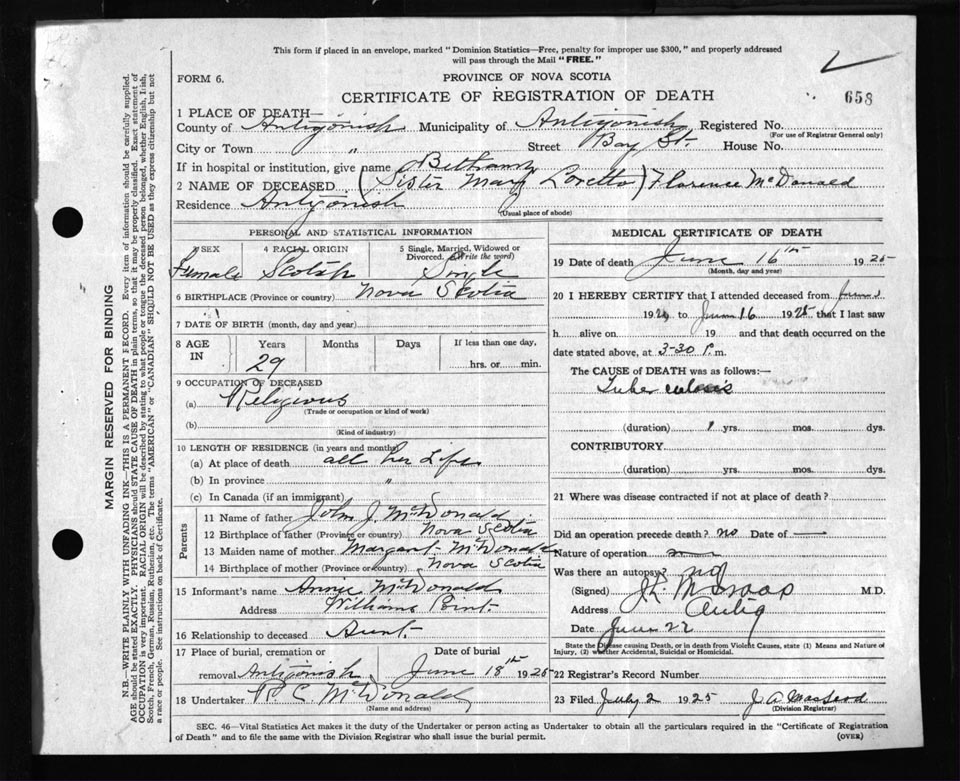 This form if placed in an envelope, marked "Dominion Statistics—Free, penalty for improper use $300," and properly addressed
will pass through the Mail "FREE."
FORM 6.
PROVINCE OF NOVA SCOTIA
CERTIFICATE OF REGISTRATION OF DEATH
658
1 PLACE OF DEATH—
County of Antigonish Municipality of Antigonish Registered No.
(For use of Registrar General only)
City or Town " Street Bay St. House No.
If in hospital or institution, give name Bethany
2 NAME OF DECEASED (Sister Mary Loretto) Florence McDonald
Residence Antigonish
(Usual place of abode)
PERSONAL AND STATISTICAL INFORMATION
3 SEX 4 RACIAL ORIGIN 5 Single, Married, Widowed or Divorced. (Write the word)
Female Scotch Single
6 BIRTHPLACE (Province or country) Nova Scotia
7 DATE OF BIRTH (month, day and year)
8 AGE IN Years Months Days If less than one day,
29 hrs. or min.
9 OCCUPATION OF DECEASED
(a) Religious
(Trade or occupation or kind of work)
(b)
(Kind of industry)
10 LENGTH OF RESIDENCE (in years and months)
(a) At place of death all her Life
(b) In province "
(c) In Canada (if an immigrant)
Parents
11 Name of father John J. McDonald
12 Birthplace of father (Province or country) Nova Scotia
13 Maiden name of mother Margaret McDonald
14 Birthplace of mother (Province or country) Nova Scotia
15 Informant's name Annie McDonald
Address Williams Point
16 Relationship to deceased Aunt
17 Place of burial, cremation or Date of burial
removal Antigonish June 18th 1925
18 Undertaker P. C. McDonald
(Name and address)
MEDICAL CERTIFICATE OF DEATH
19 Date of death June 16th 1925
(Month, day and year)
20 I HEREBY CERTIFY that I attended deceased from June
192 to June 16 1925, that I last saw
h alive on 19 and that death occurred on
date stated above, at 3-30 P.m.
The CAUSE of DEATH was as follows:—
Tuberculosis
(duration) 1 yrs. mos. dys.
CONTRIBUTORY
(duration) yrs. mos. dys.
21 Where was disease contracted if not at place of death?
Did an operation precede death? no Date of —
Nature of operation
Was there an autopsy? no
(Signed) M.D.
Address Antig
Date June 22
State the Disease causing Death, or in death from Violent Causes, state (1) Means and Nature of
Injury, (2) whether Accidental, Suicidal or Homicidal.
22 Registrar's Record Number
23 Filed July 2 1925 J. A.
(Division Registrar)
SEC. 46—Vital Statistics Act makes it the duty of the Undertaker or person acting as Undertaker to obtain all the particulars required in the "Certificate of Registration
of Death" and to file the same with the Division Registrar who shall issue the burial permit. (OVER)
MARGIN RESERVED FOR BINDING
N.B.—WRITE PLAINLY WITH UNFADING INK—THIS IS A PERMANENT RECORD. Every item of information should be carefully supplied.
AGE should be stated EXACTLY. PHYSICIANS should STATE CAUSE OF DEATH in plain terms, so that it may be properly classified. Exact statement of
OCCUPATION is very important. RACIAL ORIGIN will be described by stating to what people or tongue the deceased person belonged, whether English, Irish,
Scotch, French, German, Russian, Ruthenian, etc. The terms "AMERICAN" or "CANADIAN" SHOULD NOT BE USED as they express citizenship but not
a race or people. See instructions on back of Certificate.